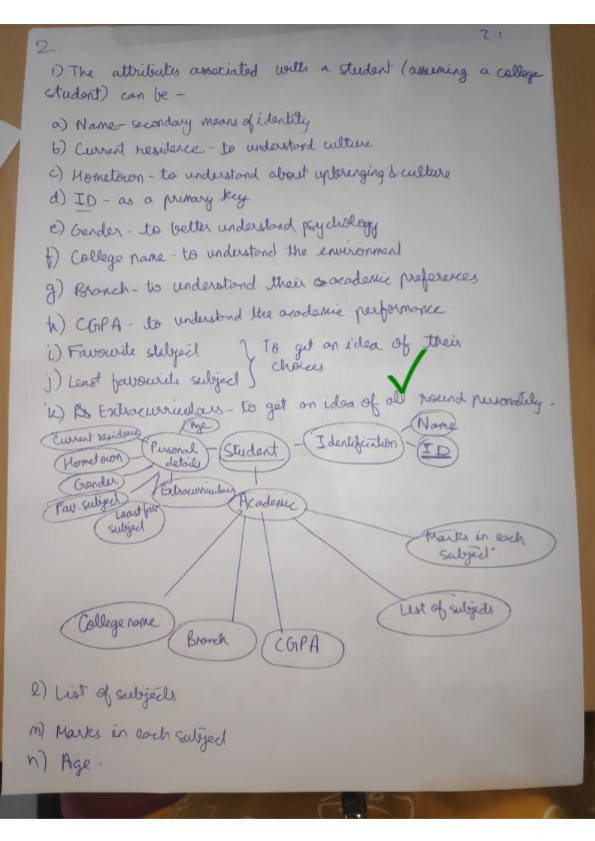 2.1
2.
i) The attributes associated with a student (assuming a college
student) can be -
a) Name - secondary means of identity
b) Current residence - to understand culture.
c) Hometown - to understand about upbringing & culture
d) ID - as a primary key
e) Gender - to better understand psychology
f) College name - to understand the environment
g) Branch - to understand their academic preferences
h) CGPA - to understand the academic performance
i) Favourite subject
j) Least favourite subject
To get an idea of their
choices
k) Extracurriculars - to get an idea of all round personality.
Current residence
Age
Hometown
Personal
details
Student
Identification
Name
ID
Gender
Fav. subject
Least fav
subject
Extracurriculars
Academic
Marks in each
subject
List of subjects
College name
Branch
CGPA
l) List of subjects
m) Marks in each subject
n) Age.